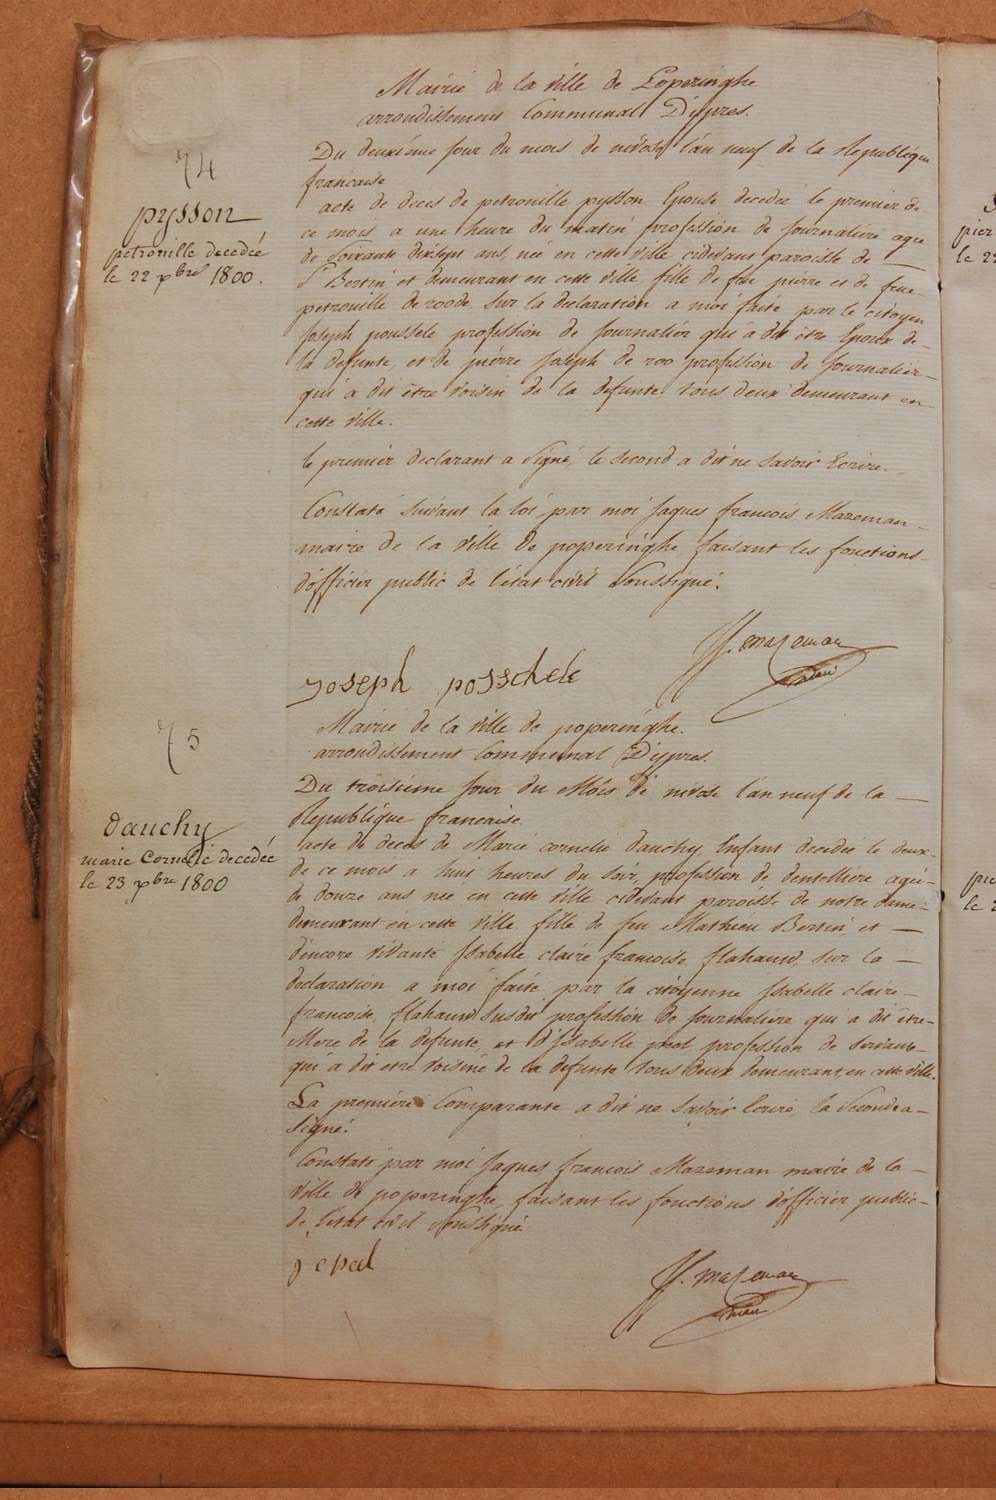 Mairie de la ville de Poperinghe
arrondissement Communal D'ypres.
74
Du deuxiéme jour du mois de nivose l'an neuf de la Republique
francaise
pysson
petronille decedée
le 22 xbre 1800.
acte de deces de petronille pysson Epouse decedée le premier de
ce mois a une heure du matin profession de journaliere agée
de soixante dixsept ans, née en cette ville cidevant paroisse de
St Bertin et demeurant en cette ville fille de feu pierre et de feue
petronille de roode, sur la declaration a moi faite par le citoyen
joseph poussele profession de journaliér qui a dit être Epoux de
la defunte, et de piérre joseph de roo profession de journaliér
qui a dit être voisin de la defunte tous deux demeurant en
cette ville.
le premiér declarant a signé, le second a dit ne savoir Ecrire
Constaté suivant la loi par moi jaques francois Mazeman
maire de la ville de poperinghe faisant les fonctions
d'officiér public de l'état civil soussigné.
JF. mazeman
maire
joseph posschele
Mairie de la ville de poperinghe.
arrondissement Communal D'ypres.
75
Du troisiéme jour du Mois de nivose l'an neuf de la
Republique francaise.
dauchy
marie Cornelie decedée
le 23 xbre 1800
acte de deces de Marie cornelie dauchy Enfant decedée le deux
de ce mois a huit heures du soir, profession de dentelliere agée
de douze ans née en cette ville cidevant paroisse de notre dame
demeurant en cette ville fille de feu Mathieu Bertin et
d'encore vivante Isabelle claire francoise flahaud, sur la
declaration a moi faite par la citoyenne Isabelle claire
francoise flahaud susdit profession de journaliere qui a dit être
Mere de la defunte, et d'Isabelle peel profession de servante
qui a dit etre voisine de la defunte tous deux demeurant en cette ville.
La premiére Comparante a dit ne savoir Ecrire, la seconde a
signé.
Constaté par moi jaques francois Mazeman maire de la
ville de poperinghe faisant les fonctions d'officiér public
de l'état civil soussigné
j e peel
JF. mazeman
maire